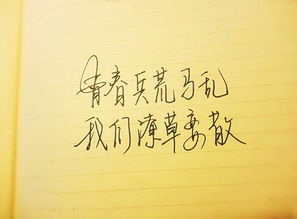 青春兵荒马乱
我们潦草要散